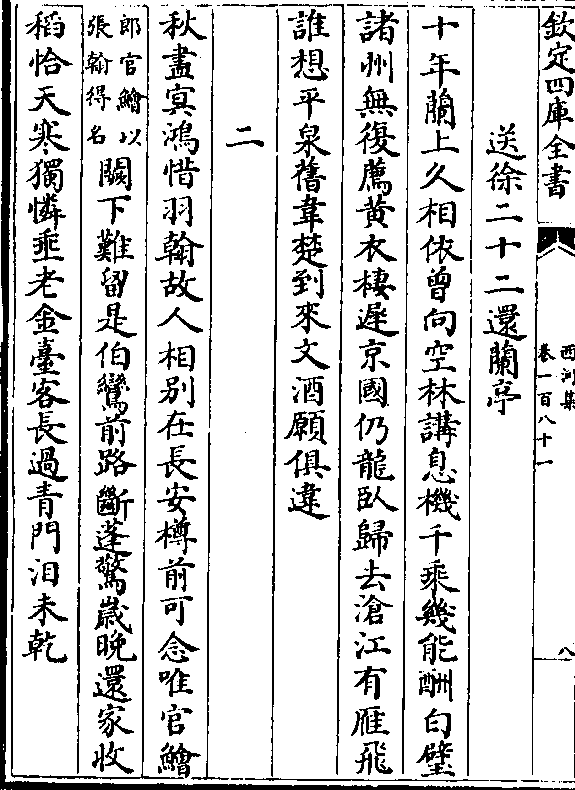 欽定四庫全書
西河集
卷一百八十一
八
送徐二十二還蘭亭
十年蘭上久相依曾向空林講息機千乘幾能酬白璧
諸州無復薦黄衣棲遲京國仍龍臥歸去滄江有雁飛
誰想平泉舊韋楚到來文酒願俱違
二
秋盡㝠鴻惜羽翰故人相别在長安樽前可念唯官鱠
郎官鱠以
張翰得名
闕下難留是伯鸞前路斷蓬驚歲晩還家收
稻恰天寒獨憐垂老金臺客長過青門泪未乾